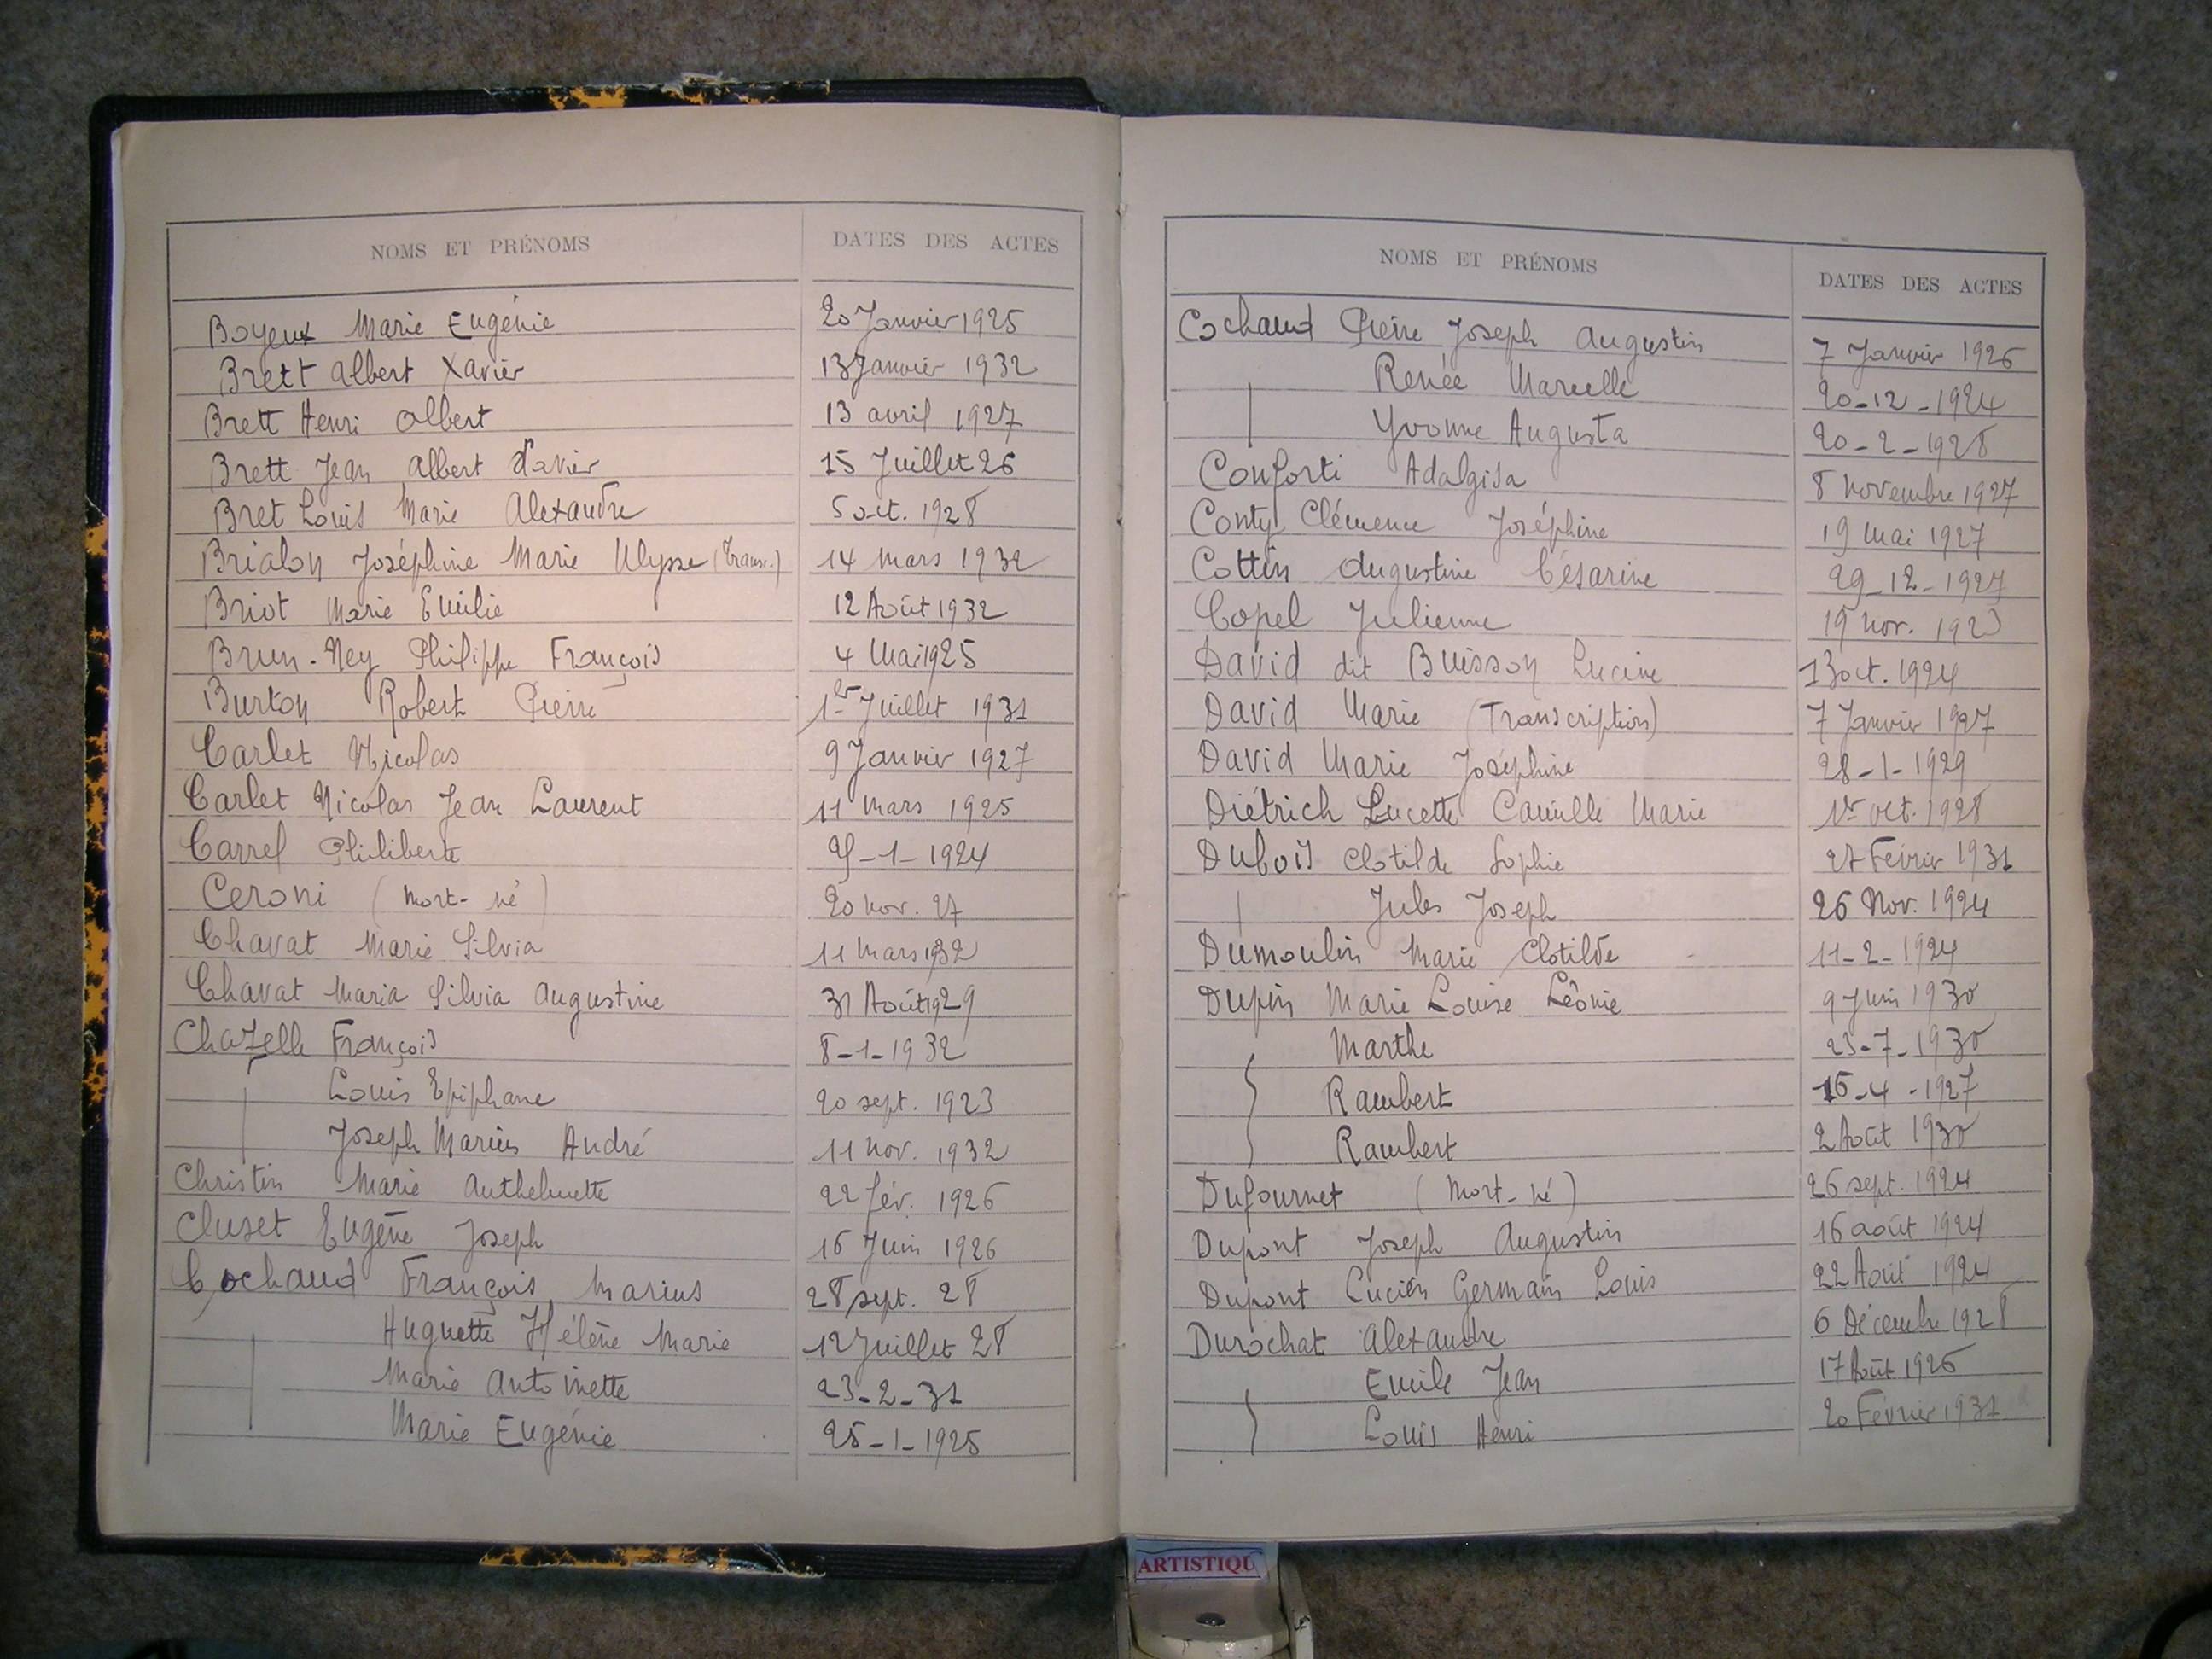 NOMS ET PRÉNOMS DATES DES ACTES
Boyeux Marie Eugénie 20 Janvier 1925
Brett Albert Xavier 13 Janvier 1932
Brett Henri Albert 13 avril 1927
Brett Jean Albert Xavier 15 Juillet 26
Bret Louis Marie Alexandre 5 oct. 1928
Brialon Joséphine Marie Ulysse (Transc.) 14 mars 1932
Briot Marie Emilie 12 Août 1932
Brun-Ney Philippe François 4 Mai 1925
Burton Robert Pierre 1er Juillet 1931
Carlet Nicolas 9 Janvier 1927
Carlet Nicolas Jean Laurent 11 mars 1925
Carrel Philiberte -1-1924
Ceroni (Mort-né) 20 nov. 27
Chavat Marie Silvia 11 Mars 1932
Chavat Maria Silvia Augustine 31 Août 1929
Chazelle François 8-1-1932
Louis Epiphane 20 sept. 1923
Joseph Marius André 11 nov. 1932
Christin Marie Anthelmette 22 fév. 1926
Cluset Eugène Joseph 16 Juin 1926
Cochaud François Marius 28 sept. 28
Huguette Hélène Marie 12 Juillet 28
Marie Antoinette 23-2-31
Marie Eugénie 25-1-1925
NOMS ET PRÉNOMS DATES DES ACTES
Cochaud Pierre Joseph Augustin 7 Janvier 1926
Renée Marcelle 20-12-1924
Yvonne Augusta 20-2-1928
Conforti Adalgisa 8 novembre 1927
Conty Clémence Joséphine 19 Mai 1927
Cottin Augustine Césarine 29-12-1927
Copel Julienne 19 nov. 1923
David dit Buisson Lucine 13 oct. 1924
David Marie (Transcription) 7 Janvier 1927
David Marie Joséphine 28-1-1929
Diétrich Lucette Camille Marie 1er oct. 1928
Dubois Clotilde Sophie 27 Février 1931
Jules Joseph 26 Nov. 1924
Dumoulin Marie Clotilde 11-2-1924
Dupin Marie Louise Léonie 9 Juin 1930
Marthe 23-7-1930
Rambert 16-4-1927
Rambert 2 Août 1930
Dufournet (Mort-né) 26 sept. 1924
Dupont Joseph Augustin 16 août 1924
Dupont Lucien Germain Louis 22 Août 1924
Durochat Alexandre 6 Décembre 1928
Emile Jean 17 Août 1926
Louis Henri 20 Février 1931
ARTISTIQU